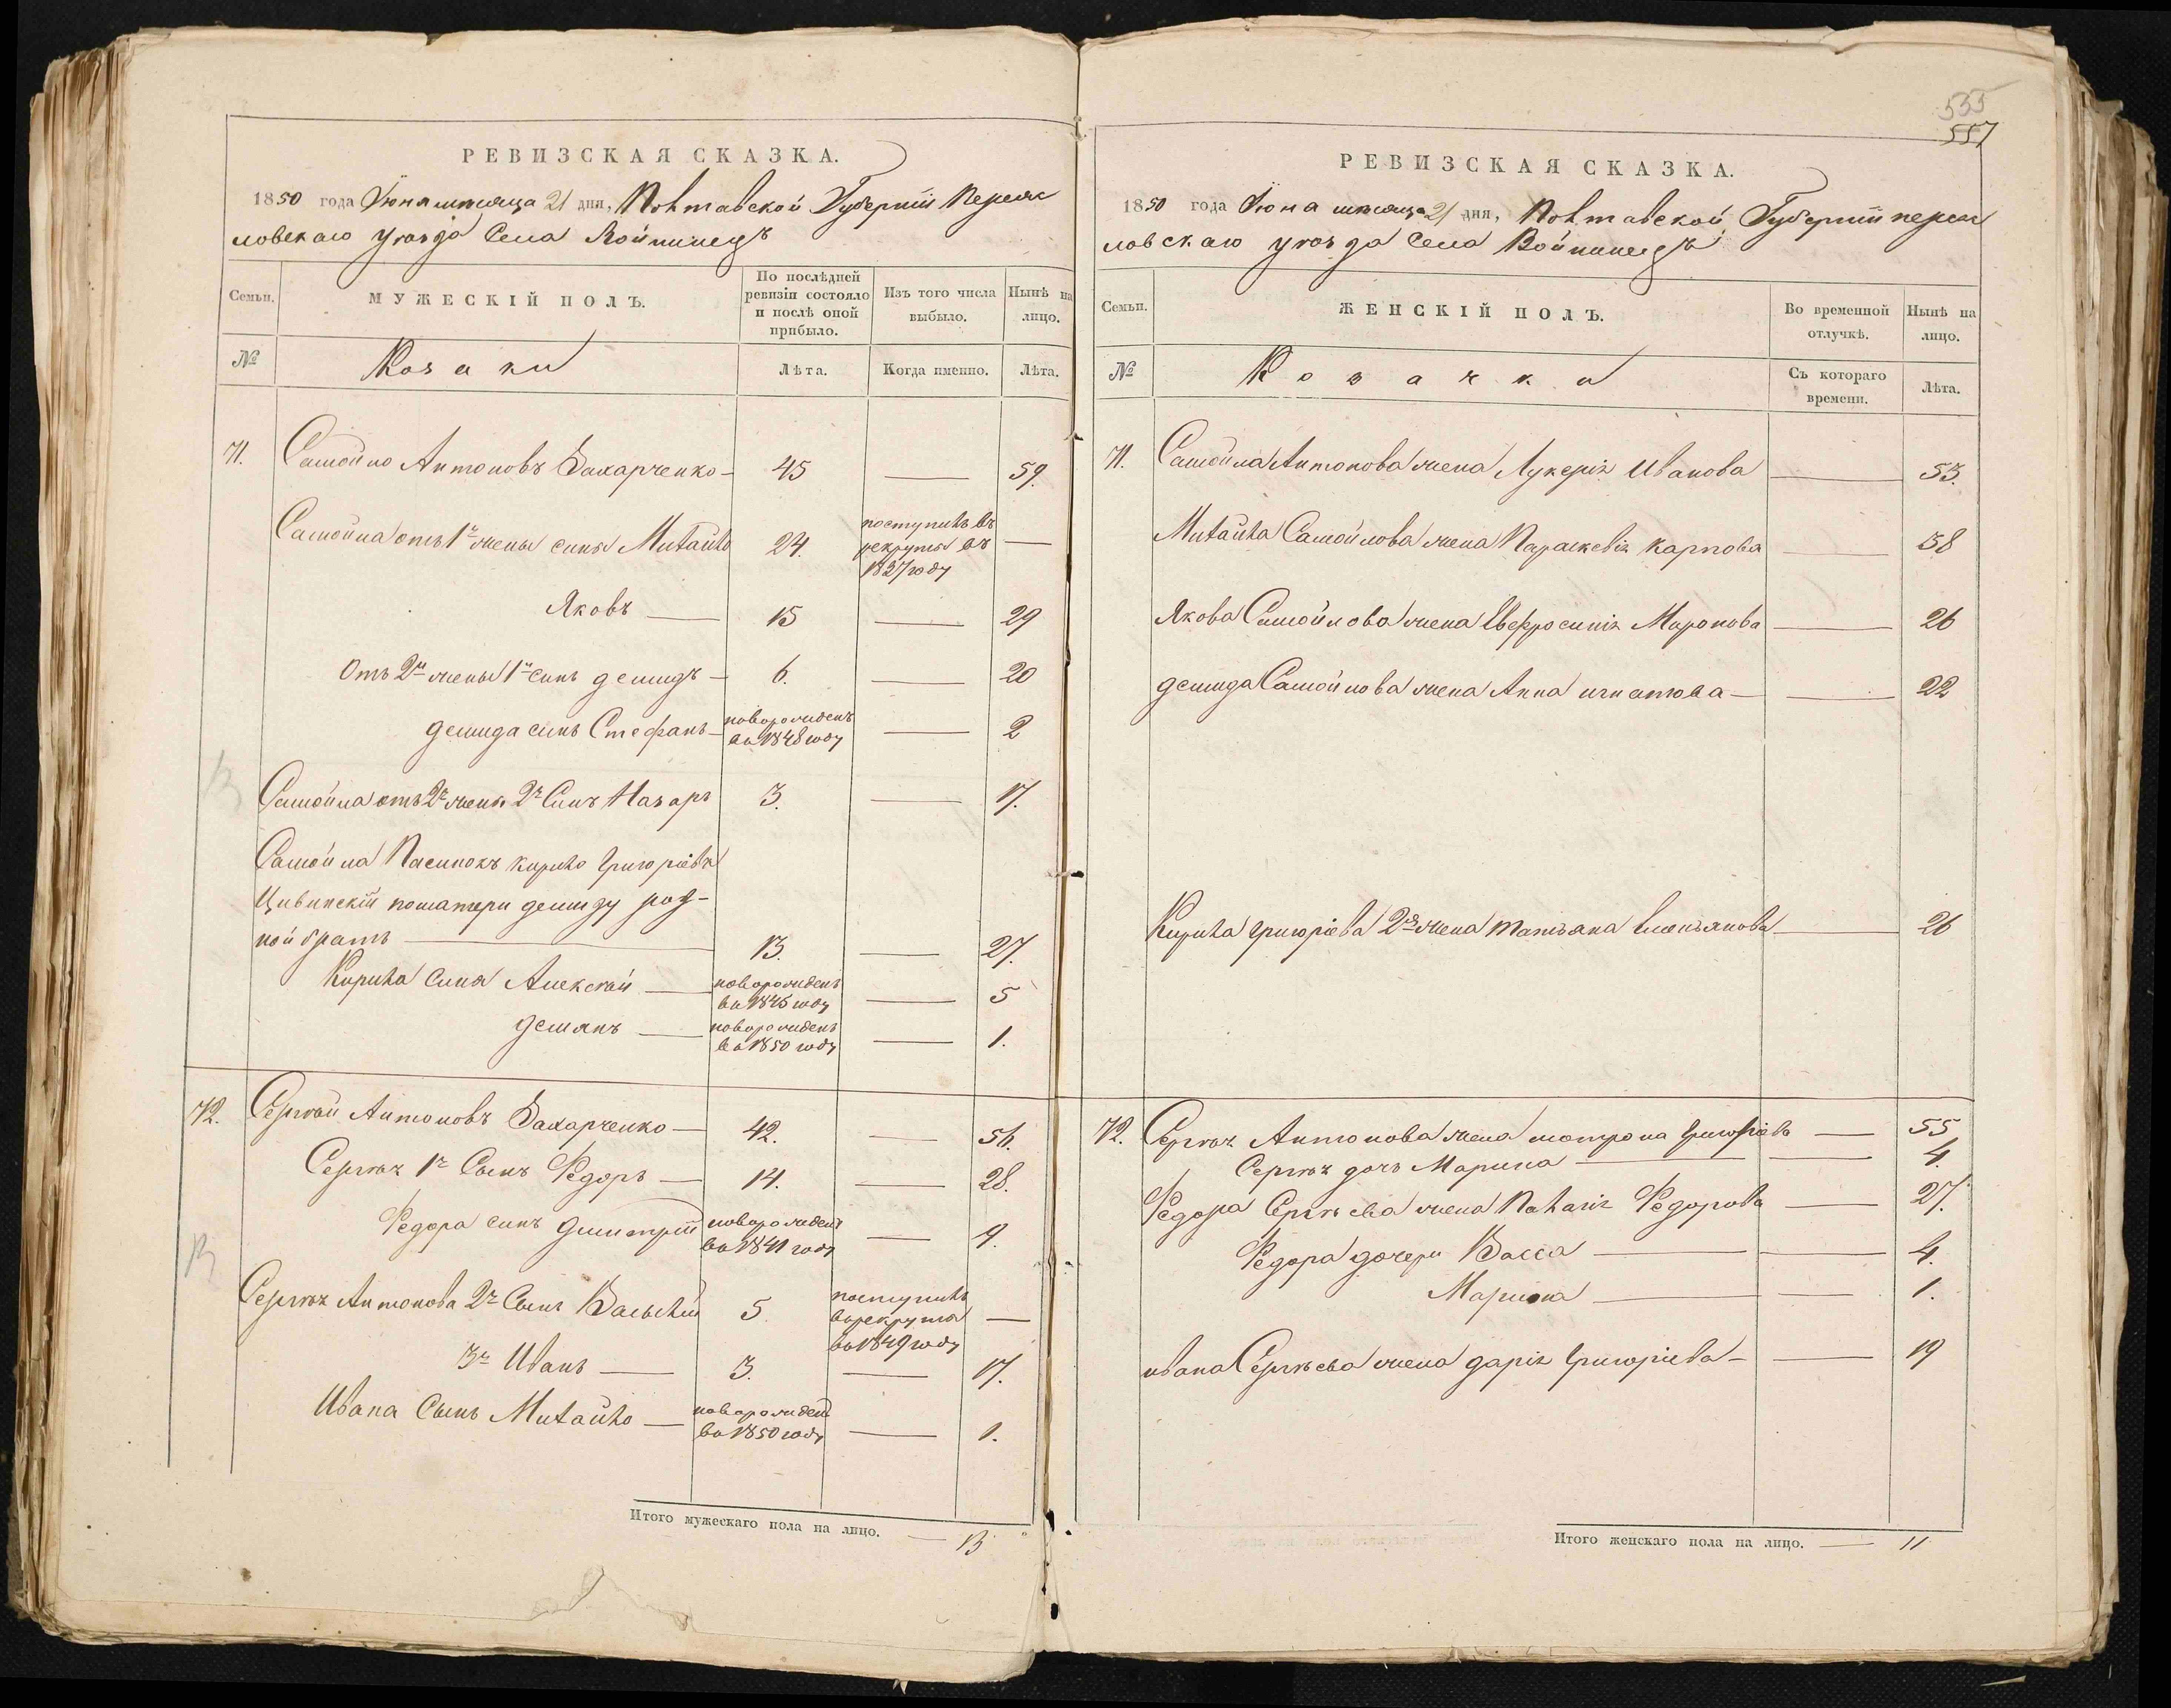 РЕВИЗСКАЯ СКАЗКА.
1850 года Июня месяца 21 дня, Полтавской Губернiи Переяс
ловскаго уезда Села Войтинецъ
Семьи.
МУЖЕСКІЙ ПОЛЪ.
По послѣдней ревизіи состояло и послѣ оной прибыло.
Изъ того числа выбыло.
Нынѣ на лицо.
№
Козаки
Лѣта.
Когда именно.
Лѣта.
71. Самойло Антоновъ Захарченко — 45 — 59.
Самойла отъ 1й жены сынъ Михайло 24. поступилъ въ
рекруты въ —
1837 году
Яковъ — 15 — 29
Отъ 2й жены 1й сынъ демидъ — 6. — 20
демида синъ Стефанъ — новорожденъ
въ 1848 году — 2
Самойла отъ 2й жены 2й Синъ Назаръ 3. — 17.
Самойла Пасинокъ Кирило Григоріевъ
Цивинскій поматери демиду род-
ной братъ — 13. — 27.
Кирила сины Алексѣй — новорожденъ
въ 1845 году — 5
демянъ — новорожденъ
въ 1850 году — 1.
72. Сергѣй Антоновъ Захарченко — 42. — 56.
Сергѣя 1й Сынъ Федоръ — 14. — 28.
Федора синъ Дмитрій новорожденъ
въ 1841 году — 9.
Сергѣя Антонова 2й Сынъ Василій 5 поступилъ
въ рекруты —
въ 1849 году
3й Иванъ — 3. — 17.
Ивана Сынъ Михайло — новорожденъ
въ 1850 году — 1.
Итого мужескаго пола на лицо. — 13
555
557
РЕВИЗСКАЯ СКАЗКА.
1850 года Июня месяца 21 дня, Полтавской Губернiи переяс
ловскаго уезда Села Войтинецъ
Семьи.
ЖЕНСКІЙ ПОЛЪ.
Во временной отлучкѣ.
Нынѣ на лицо.
№
Козачки
Съ котораго времени.
Лѣта.
71. Самойла Антонова жена Лукерія Иванова — 53.
Михайла Самойлова жена Параскевія Карпова — 38
Якова Самойлова жена Евфросинія Миронова — 26
демида Самойлова жена Анна игнатова — — 22
Кирила Григоріева 2я жена татіана Емельянова — 26
72. Сергѣя Антонова жена мотрона Григоріева — 55
Сергѣя дочъ Марина — — 4.
Федора Сергѣева жена Пелагія Федорова — 27.
Федора дочери Васса — — 4.
Марина — — 1.
ивана Сергѣева жена дарія Григоріева — — 19
Итого женскаго пола на лицо. — 11